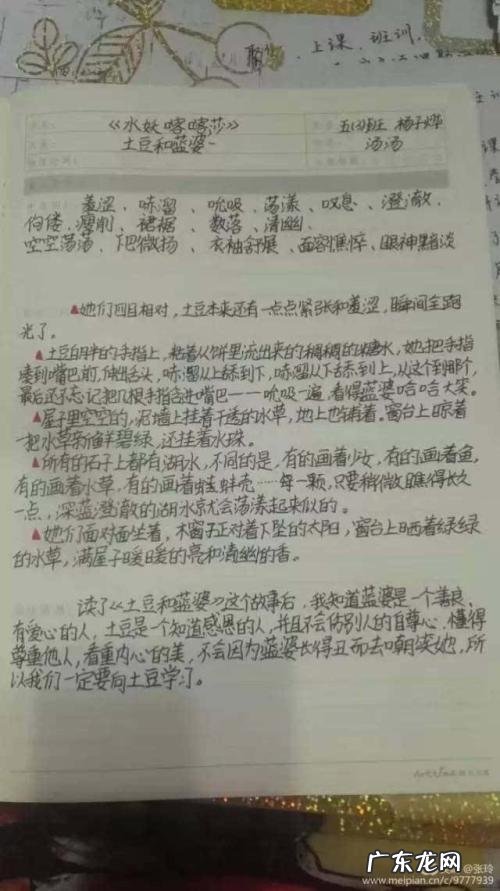 上课、班训、
《水妖喀喀莎》 五(3)班 杨子烨
土豆和蓝婆- 汤汤
羞涩、哧溜、吮吸、荡漾、叹息、澄澈、
佝偻、瘦削、裙裾、数落、清幽、
空空荡荡、下巴微扬、衣袖舒展、面容憔悴、眼神黯淡
▲她们四目相对,土豆本来还有一点点紧张和羞涩,瞬间全跑
光了。
▲土豆白胖的手指上,粘着从饼里流出来的稠稠的糖水,她把手指
凑到嘴巴前,伸出舌头,哧溜从上舔到下,哧溜从下舔到上,从这个到那个,
最后还不忘记把几根手指含进嘴巴——吮吸一遍,看得蓝婆哈哈大笑。
▲屋子里空空的,泥墙上挂着干透的水草,地上也铺着。窗台上晾着
一把水草新鲜碧绿,还挂着水珠。
▲所有的石子上都有湖水,不同的是,有的画着少女,有的画着鱼,
有的画着水草,有的画着蛙蚌壳……每一颗,只要稍微瞧得长久
一点,深蓝澄澈的湖水就会荡漾起来似的。
▲她们面对面坐着,木窗子正对着下坠的太阳,窗台上晒着绿绿
的水草,满屋子暖暖的亮和清幽的香。
读了《土豆和蓝婆》这个故事后,我知道蓝婆是一个善良、
有爱心的人,土豆是一个知道感恩的人,并且不会伤别人的自尊心,懂得
尊重他人,看重内心的美,不会因为蓝婆长得丑而去嘲笑她,所
以我们一定要向土豆学习。
@张玲
www.meipian.cn/c/9777939
广东龙网